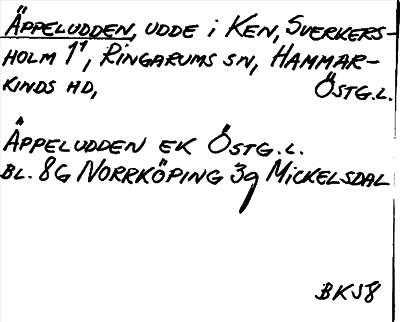 Äppeludden, udde i Ken, Sverkers-
holm 1¹, Ringarums sn, Hammar-
kinds hd, Östg.l.
Äppeludden ek Östg.l.
bl. 8G Norrköping 3g Mickelsdal
BKS8